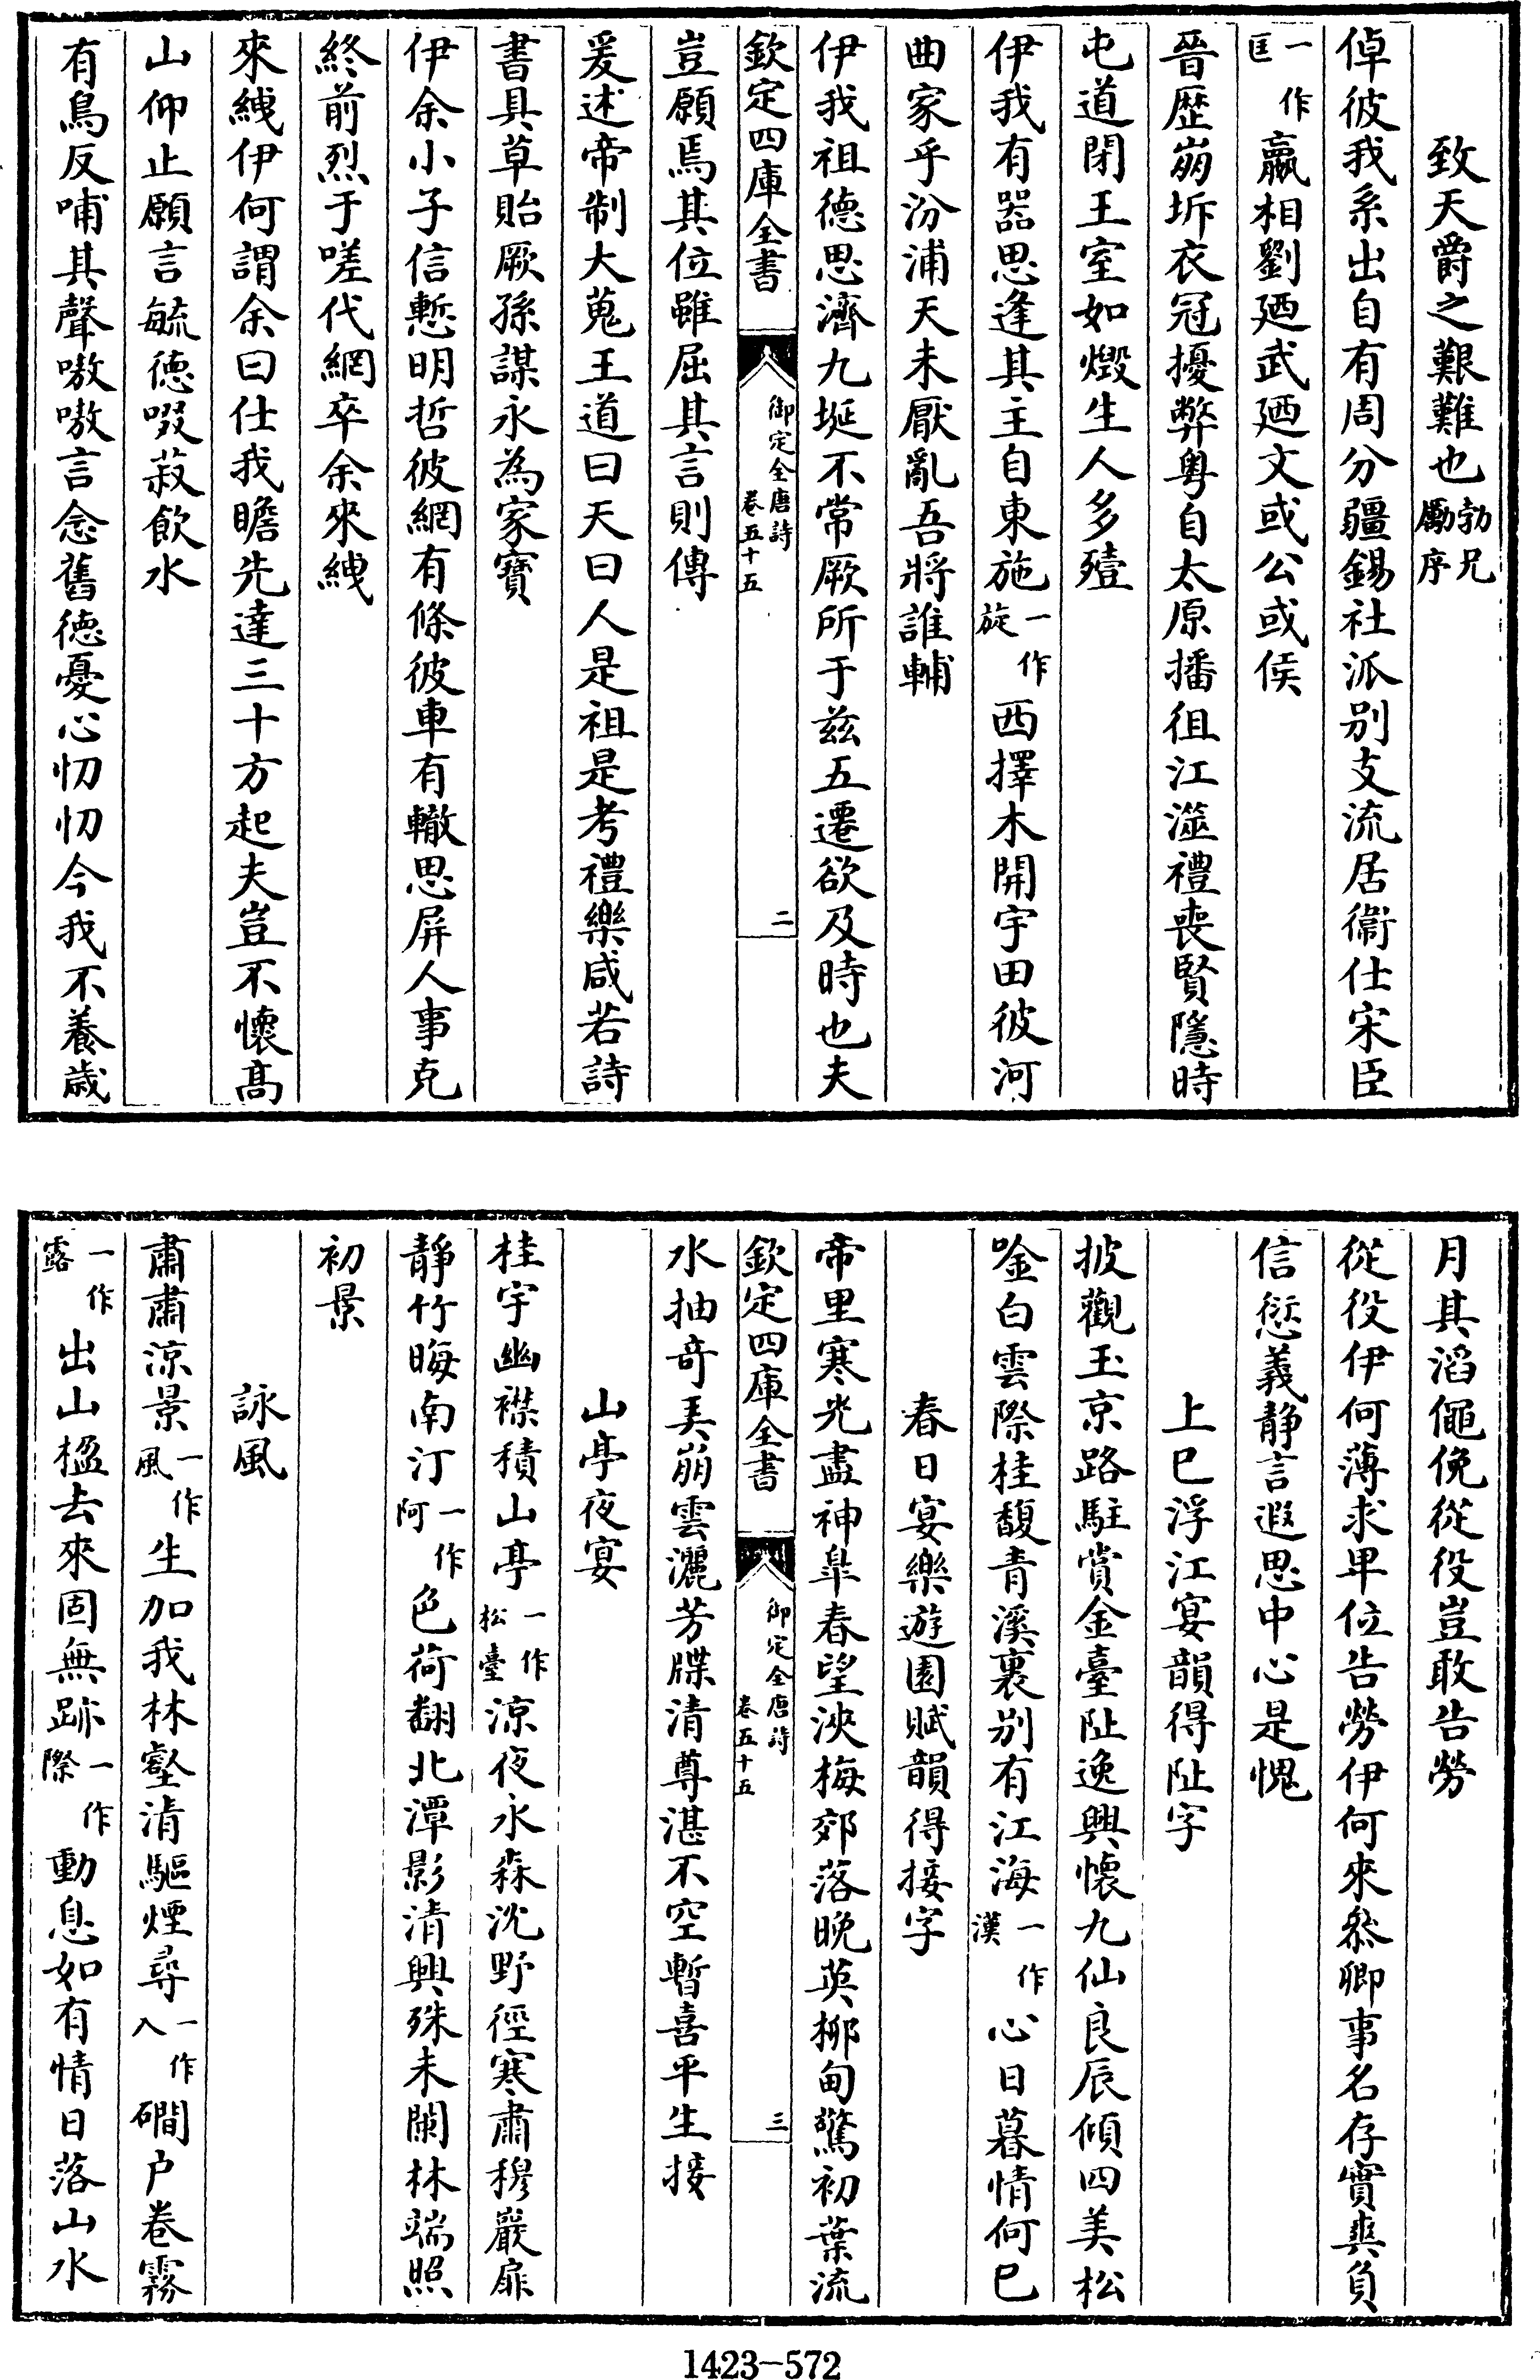 致天爵之艱難也勃兄勵序
倬彼我系出自有周分疆錫社派别支流居衞仕宋臣
一作匡嬴相劉廼武廼文或公或侯
晉歷崩坼衣冠擾弊粤自太原播徂江澨禮喪賢隱時
屯道閉王室如燬生人多殪
伊我有器思逢其主自東施一作旋西擇木開宇田彼河
曲家乎汾浦天未厭亂吾將誰輔
伊我祖德思濟九埏不常厥所于兹五遷欲及時也夫
欽定四庫全書 御定全唐詩 卷五十五 二
豈願焉其位雖屈其言則傳
爰述帝制大蒐王道曰天曰人是祖是考禮樂咸若詩
書具草貽厥孫謀永為家寳
伊余小子信慙明哲彼網有條彼車有轍思屏人事克
終前烈于嗟代網卒余來緤
來緤伊何謂余曰仕我瞻先達三十方起夫豈不懷髙
山仰止願言毓徳啜菽飲水
有鳥反哺其聲嗷嗷言念舊徳憂心忉忉今我不養歲
月其滔僶俛從役豈敢告勞
從役伊何薄求卑位告勞伊何來叅卿事名存實爽負
信愆義靜言遐思中心是愧
上巳浮江宴韻得阯字
披觀玉京路駐賞金臺阯逸興懷九仙良辰傾四美松
唫白雲際桂馥青溪裏别有江海一作漢心日暮情何已
春日宴樂遊園賦韻得接字
帝里寒光盡神臯春望浹梅郊落晚英栁甸驚初葉流
欽定四庫全書 御定全唐詩 卷五十五 三
水抽奇弄崩雲灑芳牒清尊湛不空暫喜平生接
山亭夜宴
桂宇幽襟積山亭一作松臺涼夜永森沈野徑寒肅穆巖扉
靜竹晦南汀一作阿色荷翻北潭影清興殊未闌林端照
初景
詠風
肅肅涼景一作風生加我林壑清驅煙尋一作入磵户卷霧
一作露出山楹去來固無跡一作際動息如有情日落山水
1423-572